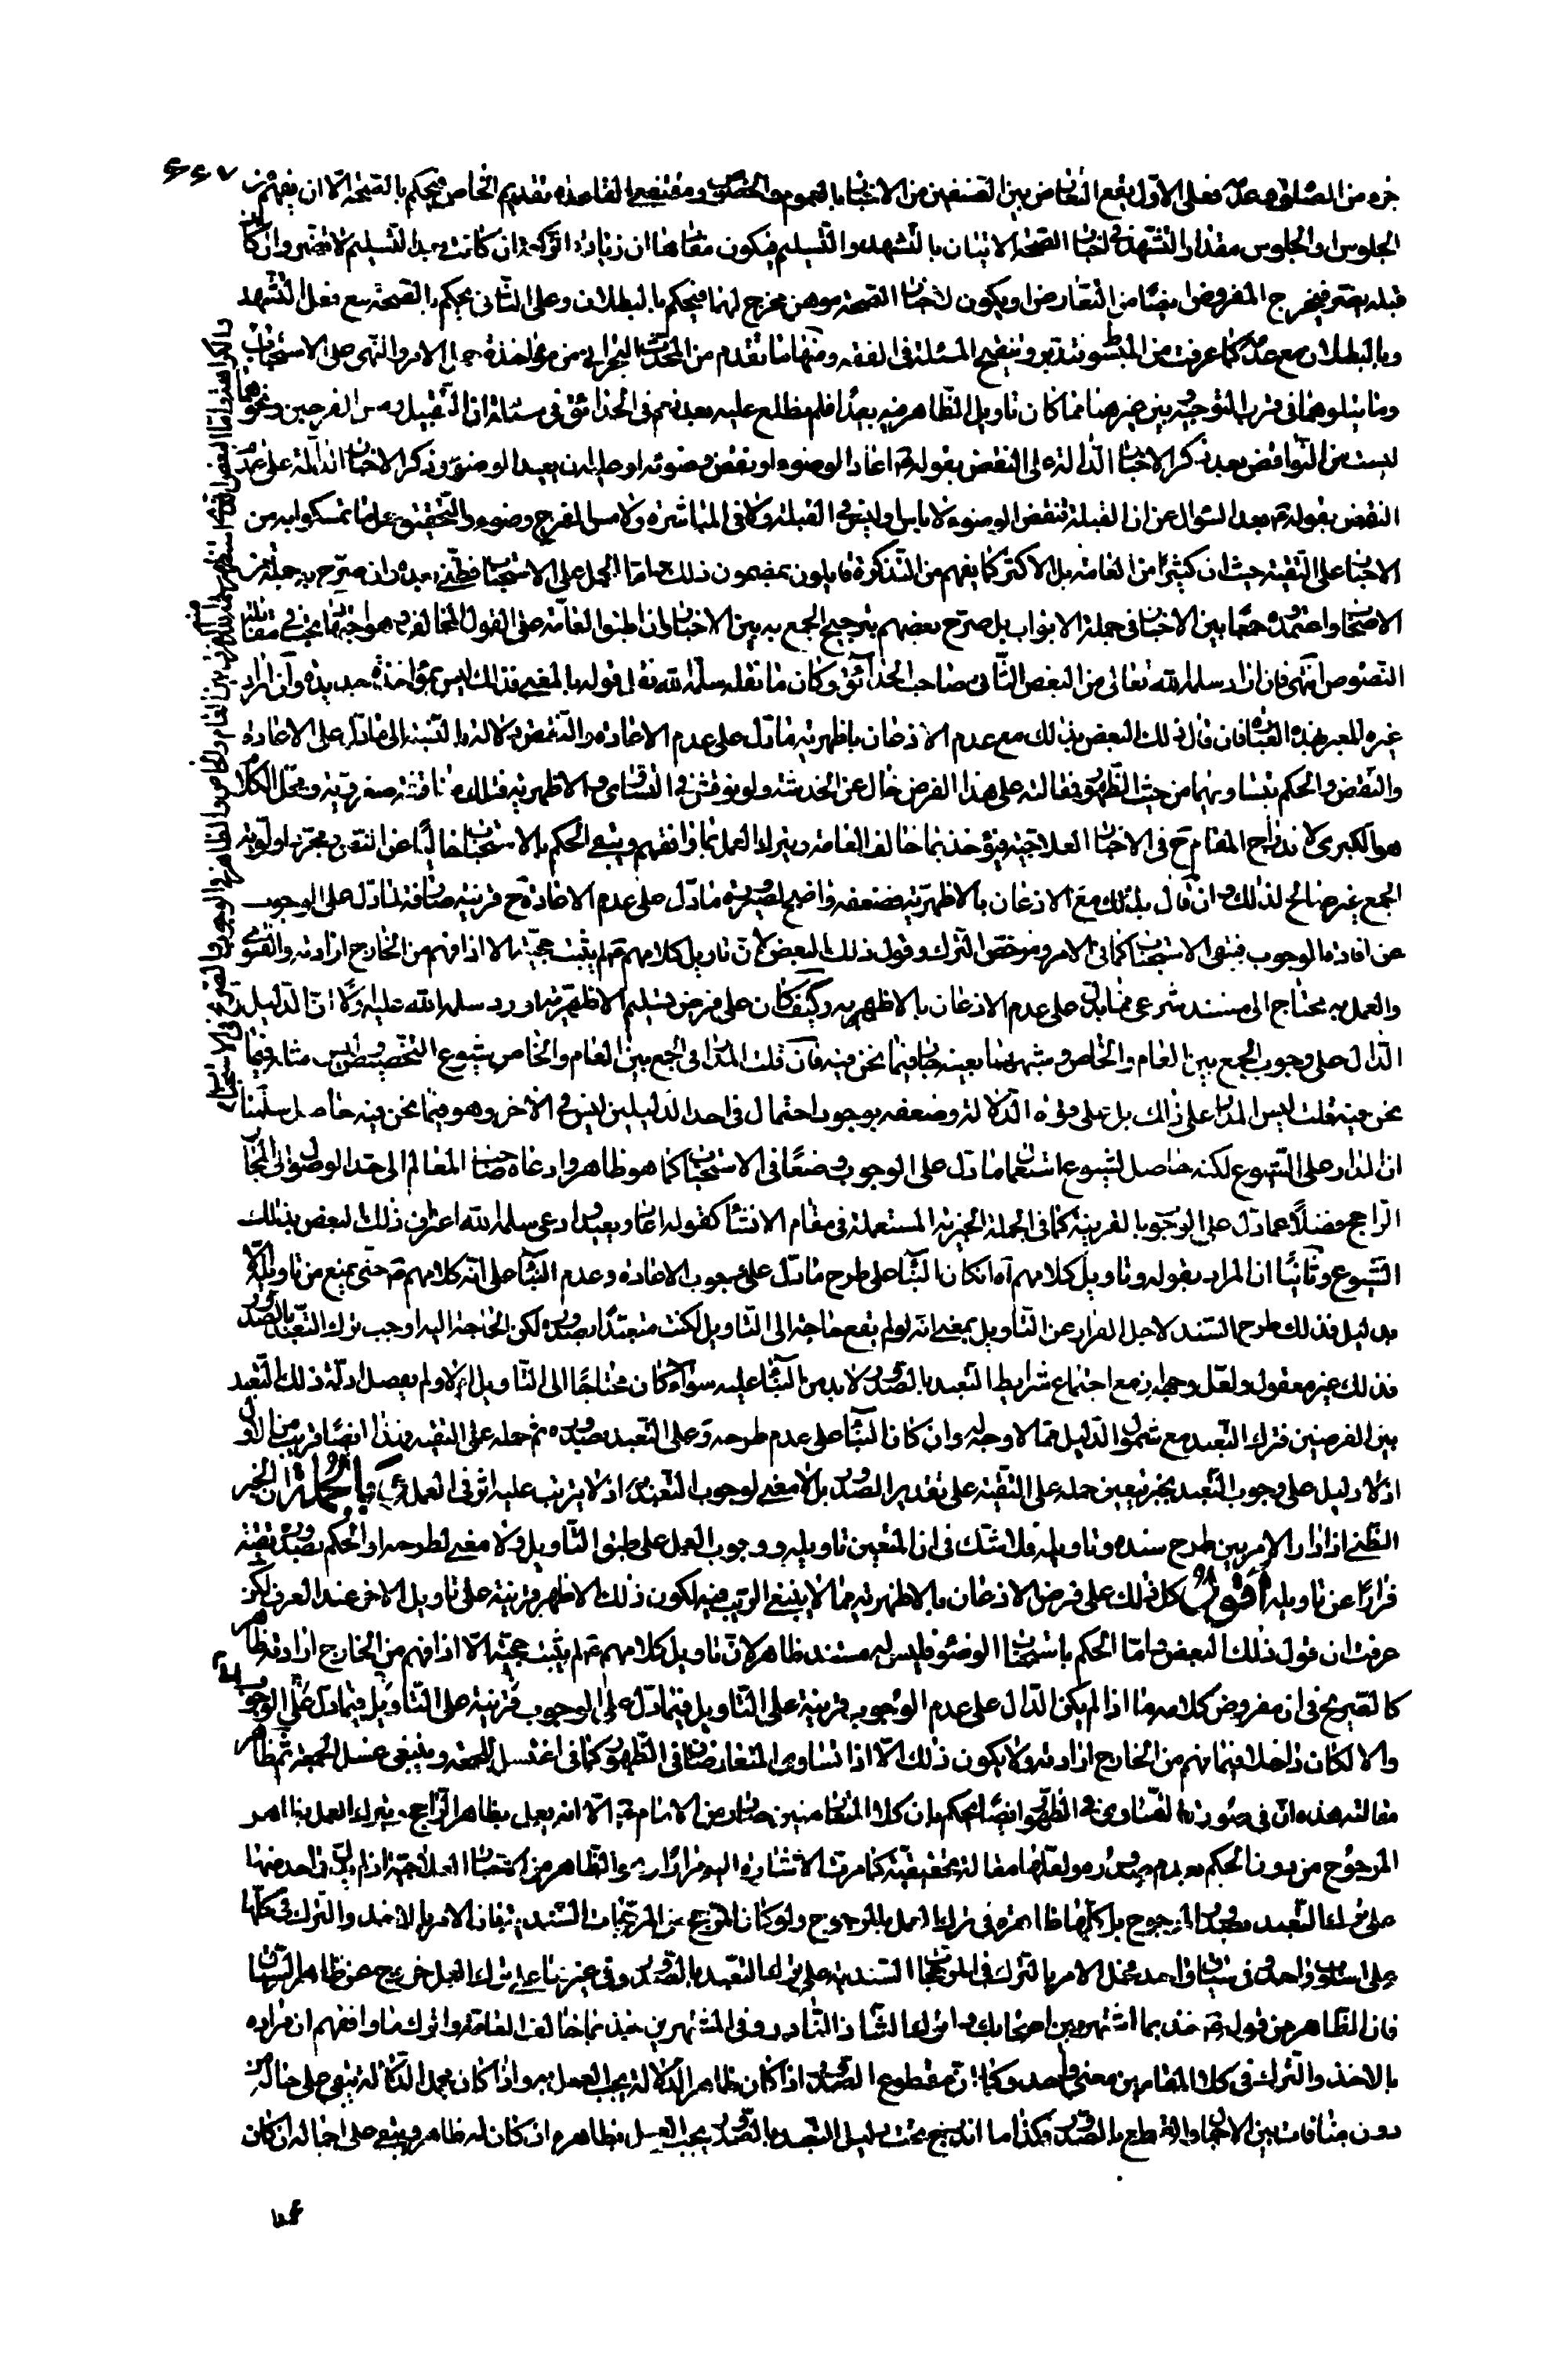 جزء من الصلوة وعدمه فعلى الاول يقع التعارض بين الصنفين من الاخبار بالعموم والخصوص ومقتضى القاعدة تقديم الخاص فيحكم بالصحة الا ان يفهم من
الجلوس والجلوس مقدار التشهد في اخبار الصحة الاتيان بالتشهد والتسليم فيكون مفادها ان زيادة الركعة ان كانت بعد التسليم لا تضر وان كان
قبله يضر فيخرج المفروض ايضا من التعارض او يكون لاخبار الصحة موهن مخرج لها فيحكم بالبطلان وعلى الثاني يحكم بالصحة مع فعل التشهد
وبالبطلان مع عدمه كما عرفت من المبسوط فتدبر وتنقيح المسئلة في الفقه ومنها ما تقدم من المحدث البحراني من مؤاخذة حمل الامر والنهي على الاستحباب
وما يتلوهما في قرب التوجيه بين غيرهما مما كان تاويل الظاهر فيه بعيدا فلم نطلع عليه بعد نعم في الحدائق في مسئلة ان التقبيل ومس الفرجين ونحوهما
ليست من النواقض بعد ذكر الاخبار الدالة على النقض بقوله ع اعاد الوضوء او نقض وضوئه او عليه ان يعيد الوضوء وذكر الاخبار الدالة على عدم
النقض بقوله ع بعد السؤال عن ان القبلة تنقض الوضوء لا باس وليس في القبلة ولا في المباشرة ولا مس الفرج وضوء والتحقيق حمل ما تمسكوا به من
الاخبار على التقية حيث ان كثيرا من العامة بل الاكثر كما يفهم من التذكرة قايلون بمضمون ذلك واما الحمل على الاستحباب فظني بعده وان صرح به جملة من
الاصحاب واعتمدوه جمعا بين الاخبار في جملة الابواب بل صرح بعضهم بترجيح الجمع به بين الاخبار وان اطبق العامة على القول المخالف وهو اجتهاد بحت في مقابلة
النصوص انتهى فان اراد سلمه الله تعالى من البعض الثاني صاحب الحدائق وكان ما نقله سلمه الله نقل قوله بالمعنى فذلك ليس بمؤاخذة جديدة وان اراد
غيره المعبر بهذه العبارة فان قال ذلك البعض بذلك مع عدم الاذعان باظهرية ما دل على عدم الاعادة والنقض دلالة بالنسبة الى ما دل على الاعادة
والنقض والحكم بتساويهما من حيث الظهور فمقالته على هذا الفرض خال عن الخدشة ولو نوقش في التساوي والاظهرية فتلك مناقشة صغروية ومحل الكلام
هو الكبرى لاندراج المقام ح في الاخبار العلاجية فيؤخذ بما خالف العامة ويترك العمل بما وافقهم ويبقى الحكم بالاستحباب خاليا عن المستند بمجرد اولوية
الجمع غير صالح لذلك وان قال بذلك مع الاذعان بالاظهرية فضعفه واضح لصيرورة ما دل على عدم الاعادة ح قرينة صارفة لما دل على الوجوب
عن افادة الوجوب فيبقى الاستحباب كما في الامر ومرخص الترك وقول ذلك البعض لان تاويل كلامهم ع لم يثبت حجيته الا اذا فهم من الخارج ارادته والفتوى
والعمل به محتاج الى مستند شرعي مما يدل على عدم الاذعان بالاظهرية وكيف كان على فرض تسليم الاظهرية اورد سلمه الله عليه اولا ان الدليل
الدال على وجوب الجمع بين العام والخاص وشبههما بعينه جار فيما نحن فيه فان قلت المدار في الجمع بين العام والخاص شيوع التخصيص وليس مثله فيما
نحن فيه قلت ليس المدار على ذلك بل على قوة الدلالة وضعفه بوجود احتمال في احد الدليلين ليس في الاخر وهو فيما نحن فيه حاصل سلمنا
ان المدار على الشيوع لكنه حاصل لشيوع استعمال ما دل على الوجوب وضعا في الاستحباب كما هو ظاهر وادعاه صاحب المعالم الى حد الوصول الى المجاز
الراجح فضلا عما دل على الوجوب بالقرينة كما في الجملة الخبرية المستعملة في مقام الانشاء كقوله اعاد ويعيد وادعى سلمه الله اعتراف ذلك البعض بذلك
الشيوع وثانيا ان المراد بقوله وتاويل كلامهم اه ان كان البناء على طرح ما دل على وجوب الاعادة وعدم البناء على انه كلامهم ع حتى يمنع من تاويله الا
بدليل فذلك طرح السند لاجل الفرار عن التاويل بمعنى انه لو لم يقع حاجة الى التاويل لكنت متعبدا بصدوره لكن الحاجة اليه اوجب ترك التعبد بالصدور
فذلك غير معقول ولعل وجهه ان مع اجتماع شرايط التعبد بالصدور لا بد من البناء عليه سواء كان محتاجا الى التاويل او لا ولم يفصل ادلة ذلك التعبد
بين الفرضين فترك التعبد مع شمول الدليل مما لا وجه له وان كان البناء على عدم طرحه وعلى التعبد بصدوره ثم حمله على التقية فهذا ايضا قريب من الاول
اذ لا دليل على وجوب التعبد بخبر يتعين حمله على التقية على تقدير الصدور بل لا معنى لوجوب التعبد به اذ لا يترتب عليه اثر في العمل وبالجملة ان الخبر
الظني اذا دار الامر بين طرح سنده وتاويله فلا شك في ان المتعين تاويله ووجوب العمل على طبق التاويل ولا معنى لطرحه او الحكم بصدوره تقية
فرارا عن تاويله اقول كل ذلك على فرض الاذعان بالاظهرية مما لا ينبغي الريب فيه لكون ذلك الاظهر قرينة على تاويل الاخر عند العرف لكن
عرفت ان قول ذلك البعض واما الحكم باستحباب الوضوء فليس له مستند ظاهر لان تاويل كلامهم ع لم يثبت حجيته الا اذا فهم من الخارج ارادته ظاهر
كالصريح في ان مفروض كلامه ما اذا لم يكن الدال على عدم الوجوب قرينة على التاويل فيما دل على الوجوب قرينة على التاويل فيما دل على الوجوب
والا لكان داخلا فيما فهم من الخارج ارادته ولا يكون ذلك الا اذا تساوى المتعارضان في الظهور كما في اغتسل للجمعة وينبغي غسل الجمعة ثم ظاهر
مقالته هذه ان في صورة التساوي في الظهور ايضا يحكم بان كلا المتعارضين صادر من الامام ع الا انه يعمل بظاهر الراجح ويترك العمل بظاهر
المرجوح من دون الحكم بعدم صدوره ولعلها مقالة تحقيقية كما مرت الاشارة اليه مرارا اذ الظاهر من الاخبار العلاجية اذ لم يدل في احد منها
على ترك التعبد بصدور المرجوح بل كلها ظاهرة في ترك العمل بالمرجوح ولو كان المرجح من المرجحات السندية فان الامر بالاخذ والترك في كلها
على اسلوب واحد وفي سياق واحد فحمل الامر بالترك في المرجحات السندية على ترك التعبد بالصدور وفي غيرها على ترك العمل خروج عن ظاهر السياق
فان الظاهر من قوله ع خذ بما اشتهر بين اصحابك واترك الشاذ النادر وفي المشتهرين خذ بما خالف العامة واترك ما وافقهم ان مراده
بالاخذ والترك في كلا المقامين معنى واحد وكما ان مقطوع الصدور اذا كان ظاهر الدلالة يجب العمل به واذا كان مجمل الدلالة يبقى على حاله من
دون منافات بين الاجمال والقطع بالصدور فكذا ما اندرج تحت دليل التعبد بالصدور يجب العمل بظاهره ان كان له ظاهر ويبقى على اجماله ان كان